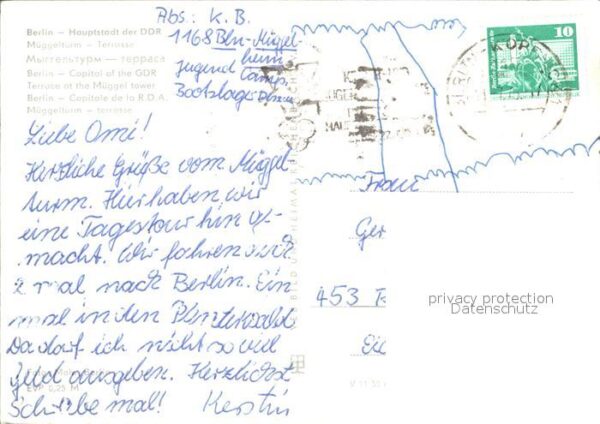 Berlin – Hauptstadt der DDR
Müggelturm – Terrasse
Мюггельтурм – терраса
Berlin – Capital of the GDR
Terrace at the Müggel tower
Berlin – Capitale de la R.D.A.
Müggelturm – terrasse
Abs: K. B.
1168 Bln-Müggel-
heim
Jugend Camp.
Bootslager
10
KÖPENICK
Liebe Omi!
Herzliche Grüße vom Müggel-
turm. Hier haben wir
eine Tagestour hin ge-
macht. Wir fahren auch
2 mal nach Berlin. Ein
mal in den Plänterwald
Da darf ich nicht so viel
Geld ausgeben. Herzlichst
Schreibe mal! Kerstin
Frau
Ger
453
privacy protection
Datenschutz
EVP 0,25 M